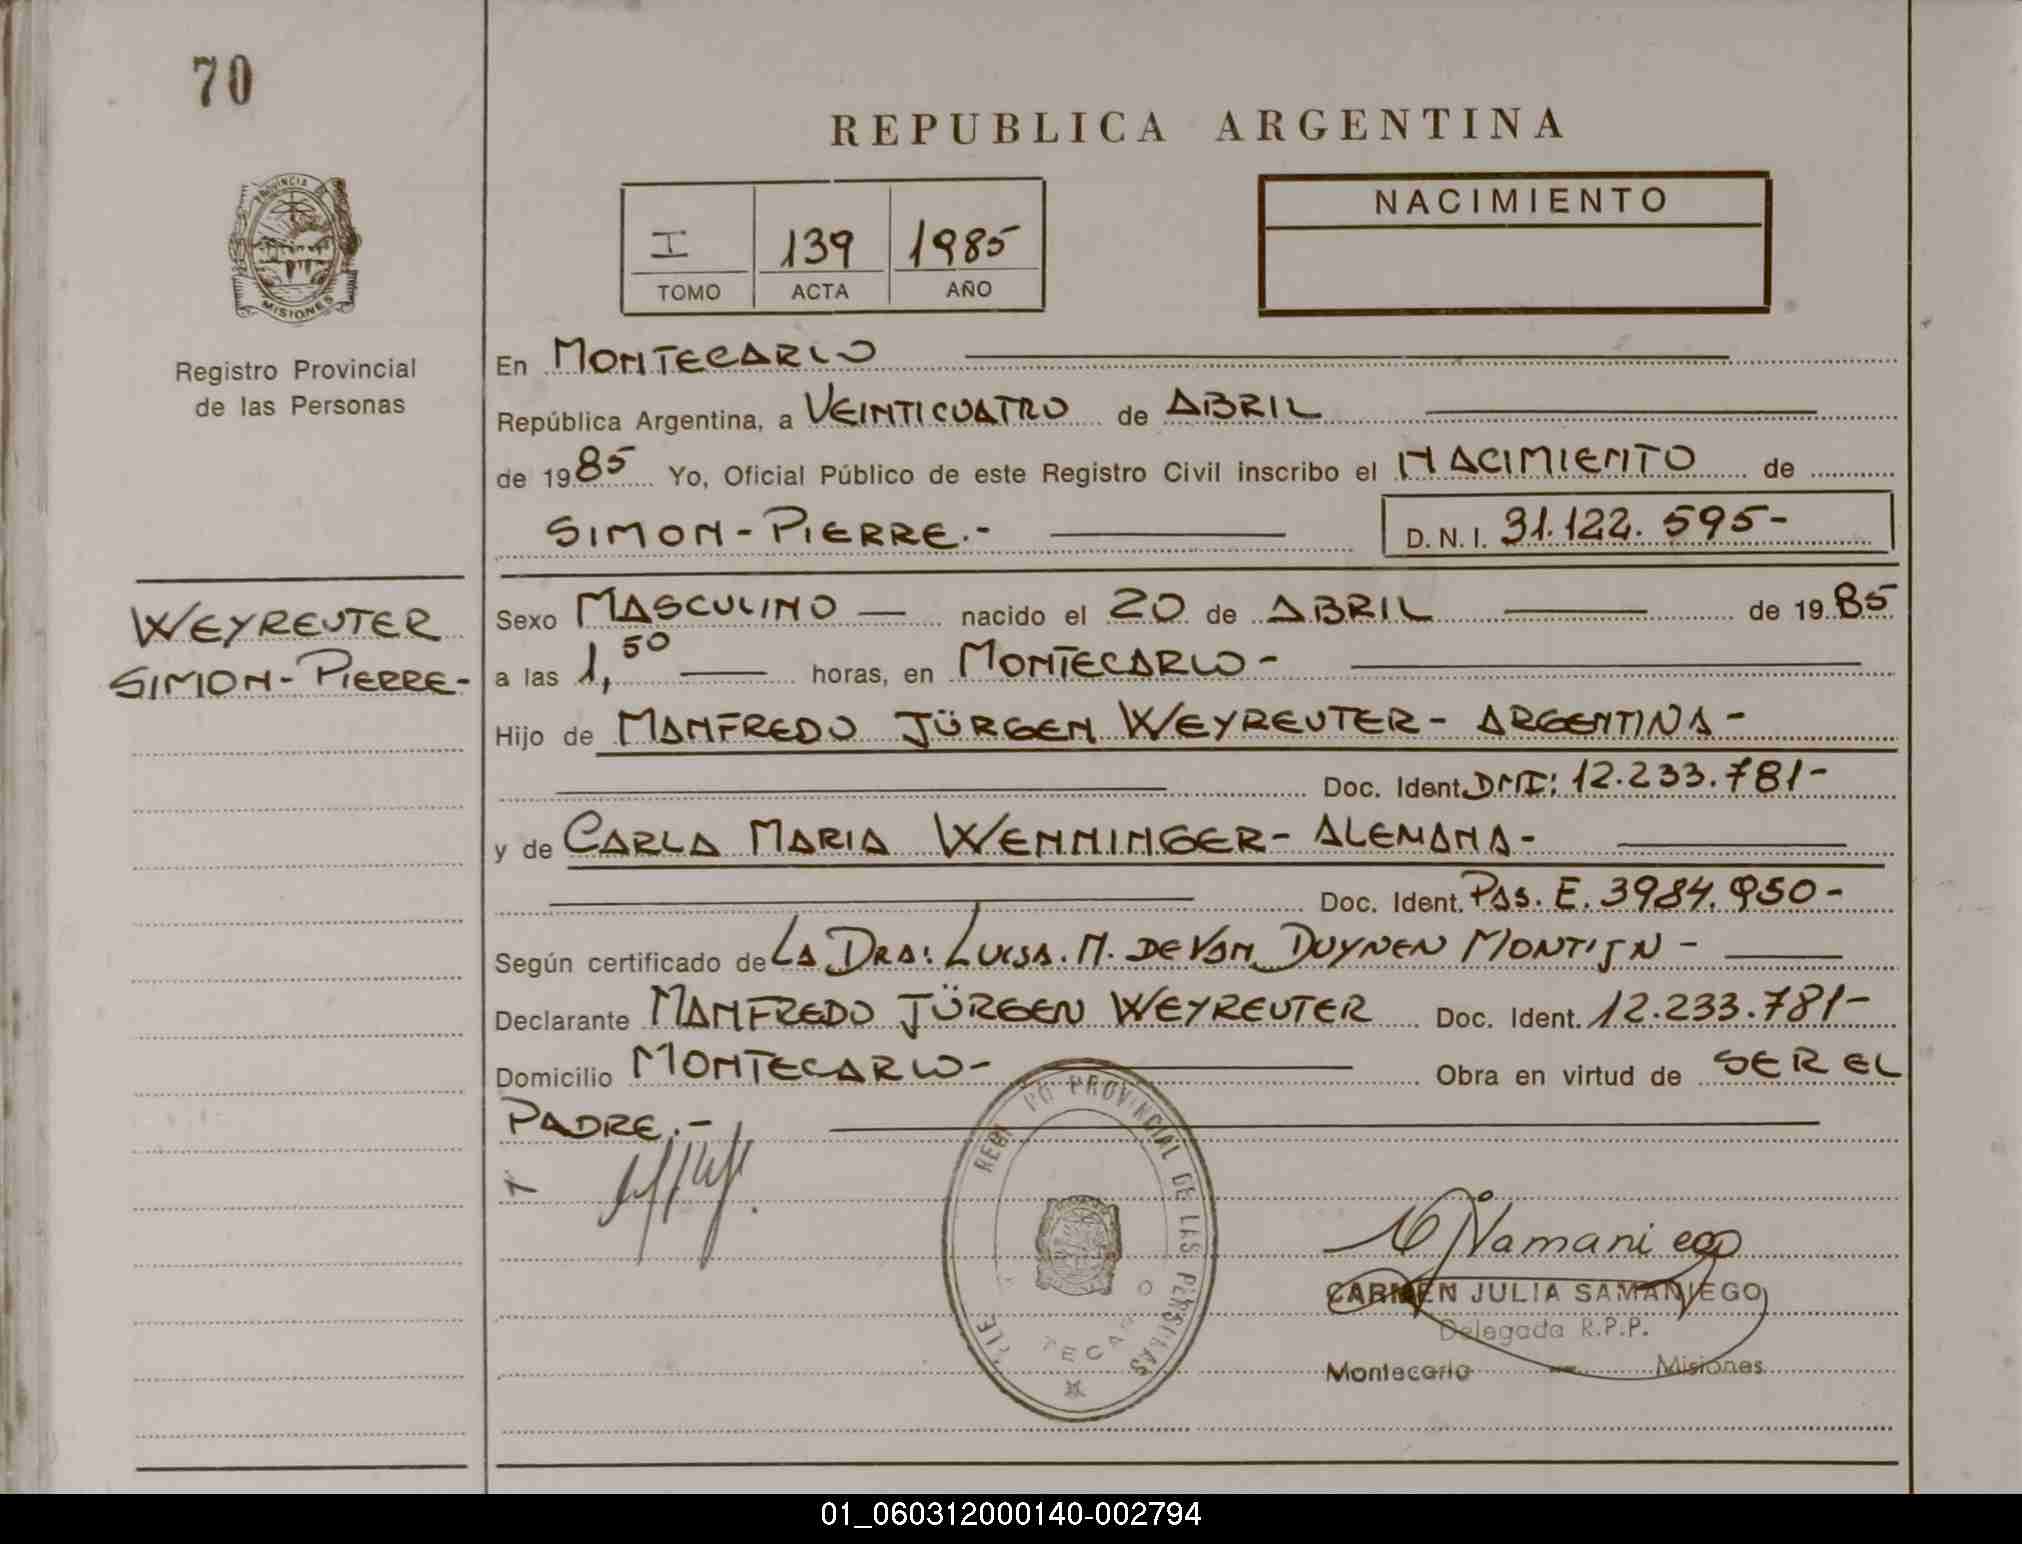 70
REPUBLICA ARGENTINA
PROVINCIA DE MISIONES
I 139 1985
TOMO ACTA AÑO
NACIMIENTO
Registro Provincial
de las Personas
WEYREUTER
SIMON-PIERRE-
En MONTECARLO
República Argentina, a VEINTICUATRO de ABRIL
de 1985 Yo, Oficial Público de este Registro Civil inscribo el NACIMIENTO de
SIMON-PIERRE.- D.N.I. 31.122.595-
Sexo MASCULINO nacido el 20 de ABRIL de 1985
a las 1,50 horas, en MONTECARLO-
Hijo de MANFREDO JÜRGEN WEYREUTER- ARGENTINA-
Doc. Ident. DNI: 12.233.781-
y de CARLA MARIA WENNINGER- ALEMANA-
Doc. Ident. PAS. E. 3984.950-
Según certificado de LA DRA: LUISA. M. DE VAN DUYNEN MONTIJN-
Declarante MANFREDO JÜRGEN WEYREUTER Doc. Ident. 12.233.781-
Domicilio MONTECARLO- Obra en virtud de SER EL
PADRE.-
PROVINCIAL DE LAS PERSONAS
Samaniego
CARMEN JULIA SAMANIEGO
Delegada R.P.P.
Montecarlo - Misiones
01_060312000140-002794